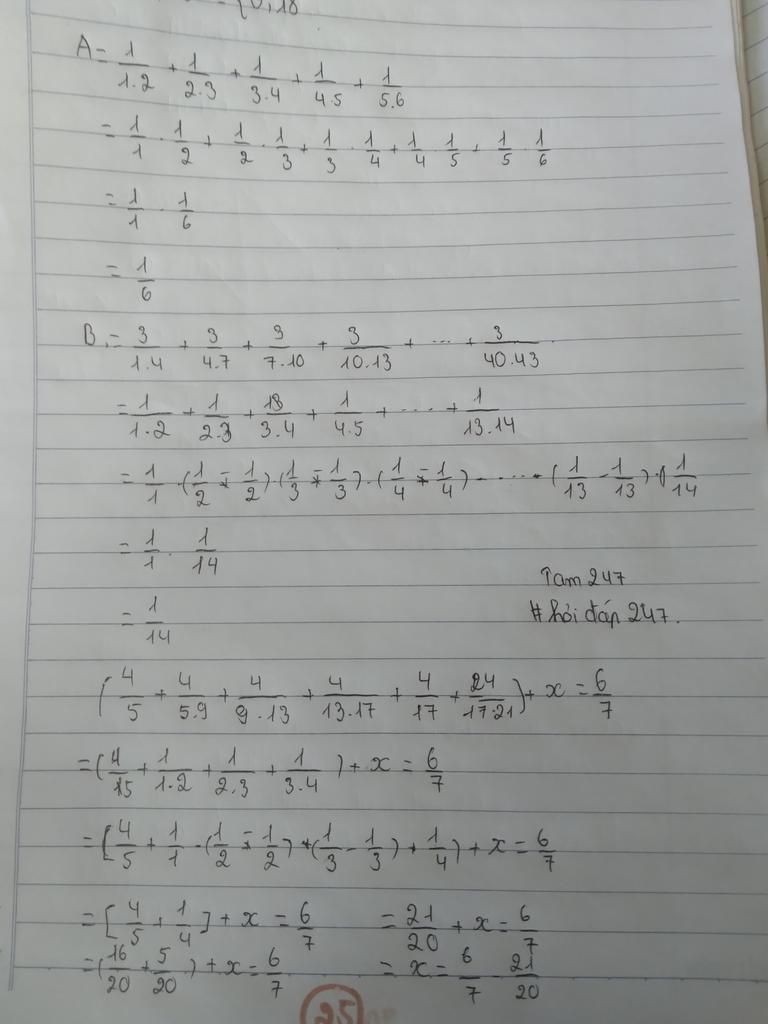 A = 1/1.2 + 1/2.3 + 1/3.4 + 1/4.5 + 1/5.6
= 1/1 . 1/2 + 1/2 . 1/3 + 1/3 . 1/4 + 1/4 . 1/5 + 1/5 . 1/6
= 1/1 . 1/6
= 1/6
B = 3/1.4 + 3/4.7 + 3/7.10 + 3/10.13 + ... + 3/40.43
= 1/1.2 + 1/2.3 + 1/3.4 + 1/4.5 + .... + 1/13.14
= 1/1 . (1/2 - 1/2) . (1/3 - 1/3) . (1/4 - 1/4) ...... (1/13 - 1/13) . 1/14
= 1/1 . 1/14
Tam 247
= 1/14
# hỏi đáp 247.
(4/5 + 4/5.9 + 4/9.13 + 4/13.17 + 4/17 + 24/17.21) + x = 6/7
= (4/15 + 1/1.2 + 1/2.3 + 1/3.4) + x = 6/7
= [4/5 + 1/1 - (1/2 - 1/2) + (1/3 - 1/3) + 1/4) + x = 6/7
= [4/5 + 1/4] + x = 6/7 = 21/20 + x = 6/7
= (16/20 + 5/20) + x = 6/7 = x = 6/7 21/20
25